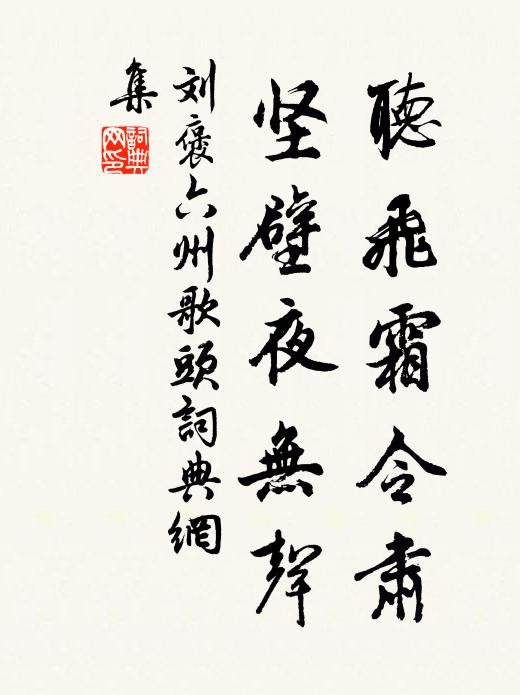 聽飛霜令肅
坚壁夜無聲
刘褒六州歌頭詞典網
集
詞典
网印